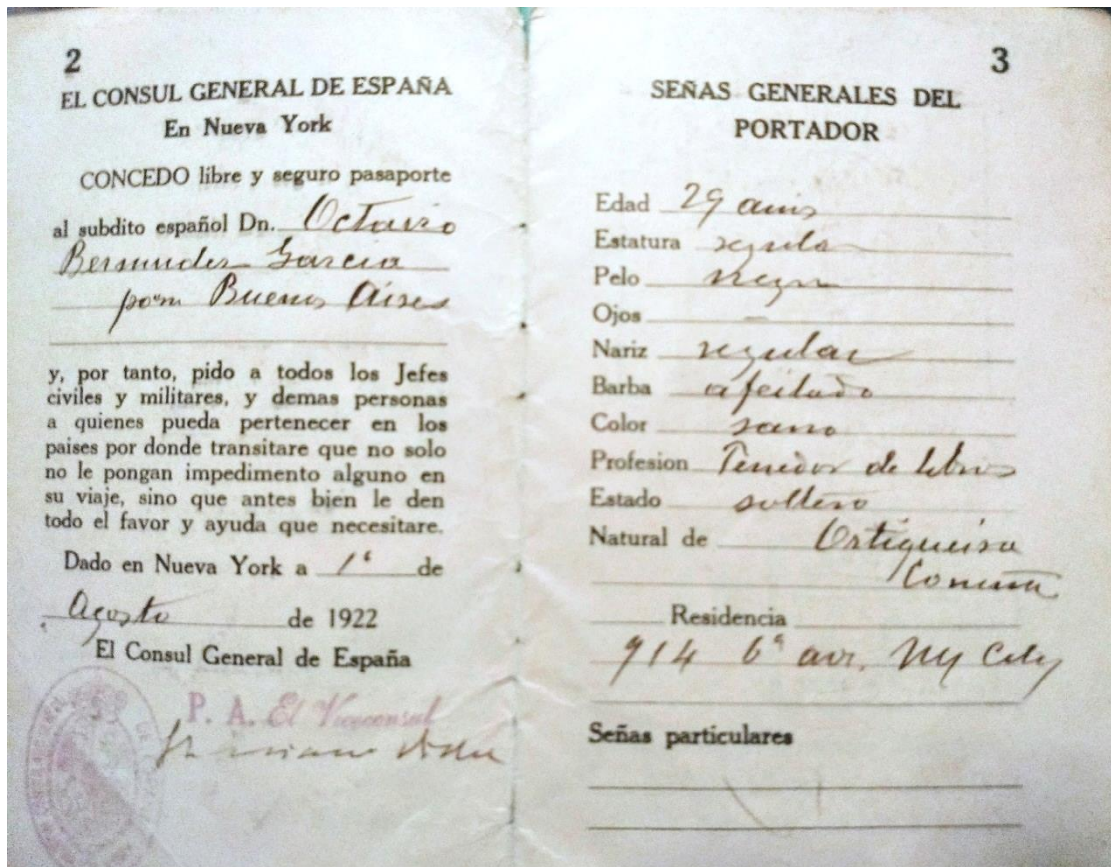 2
EL CONSUL GENERAL DE ESPAÑA
En Nueva York
CONCEDO libre y seguro pasaporte
al subdito español Dn. Octavio
Bermudez Garcia
para Buenos Aires
y, por tanto, pido a todos los Jefes
civiles y militares, y demas personas
a quienes pueda pertenecer en los
paises por donde transitare que no solo
no le pongan impedimento alguno en
su viaje, sino que antes bien le den
todo el favor y ayuda que necesitare.
Dado en Nueva York a 1º de
Agosto de 1922
El Consul General de España
P. A. El Viceconsul
3
SEÑAS GENERALES DEL
PORTADOR
Edad 29 años
Estatura regular
Pelo negro
Ojos —
Nariz regular
Barba afeitado
Color sano
Profesion Tenedor de libros
Estado soltero
Natural de Ortigueira
Coruña
Residencia
914 6ª ave. NY City
Señas particulares